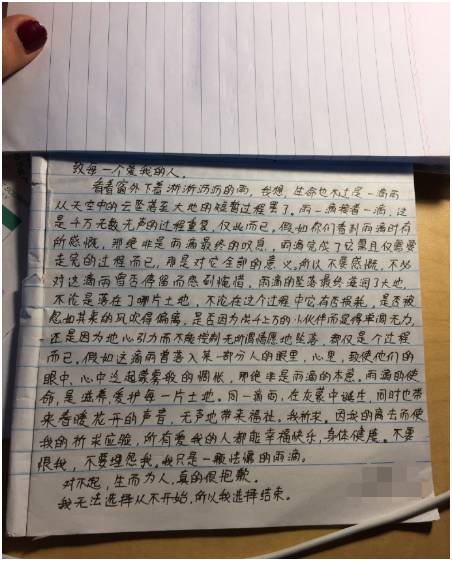 致每一个爱我的人。
看着窗外下着淅淅沥沥的雨，我想，生命也不过是一滴雨
从天空中的云坠落至大地的短暂过程罢了。雨一滴接着一滴，这
是千万无数无声的过程重复，仅此而已。假如你们看到雨滴时有
所感慨，那绝非是雨滴最终的叹息，雨滴完成了它需且仅需要
走完的过程而已，那是对它全部的意义。所以不要感慨，不必
对这滴雨曾否停留而感到惋惜，雨滴的坠落最终滋润了大地，
不论是落在了哪片土地，不论在这个过程中它有否损耗，是否被
忽如其来的风吹得偏离，是否因为成千上万的小伙伴而显得单调无力，
还是因为地心引力而不能控制无所谓情愿地坠落，都仅是个过程
而已。假如这滴雨曾落入某一部分人的眼里，心里，致使他们的
眼中，心中泛起雾雾般的惆怅，那绝非是雨滴的本意。雨滴的使
命，是滋养，爱护每一片土地。同一滴雨，在灰暮中诞生，同时也带
来春暖花开的声音，无声地带来福祉。我祈求，因我的离去而使
我的祈求应验，所有爱我的人都能幸福快乐，身体健康。不要
恨我，不要埋怨我，我只是一颗怯懦的雨滴。
对不起，生而为人，真的很抱歉。
我无法选择从不开始，所以我选择结束。